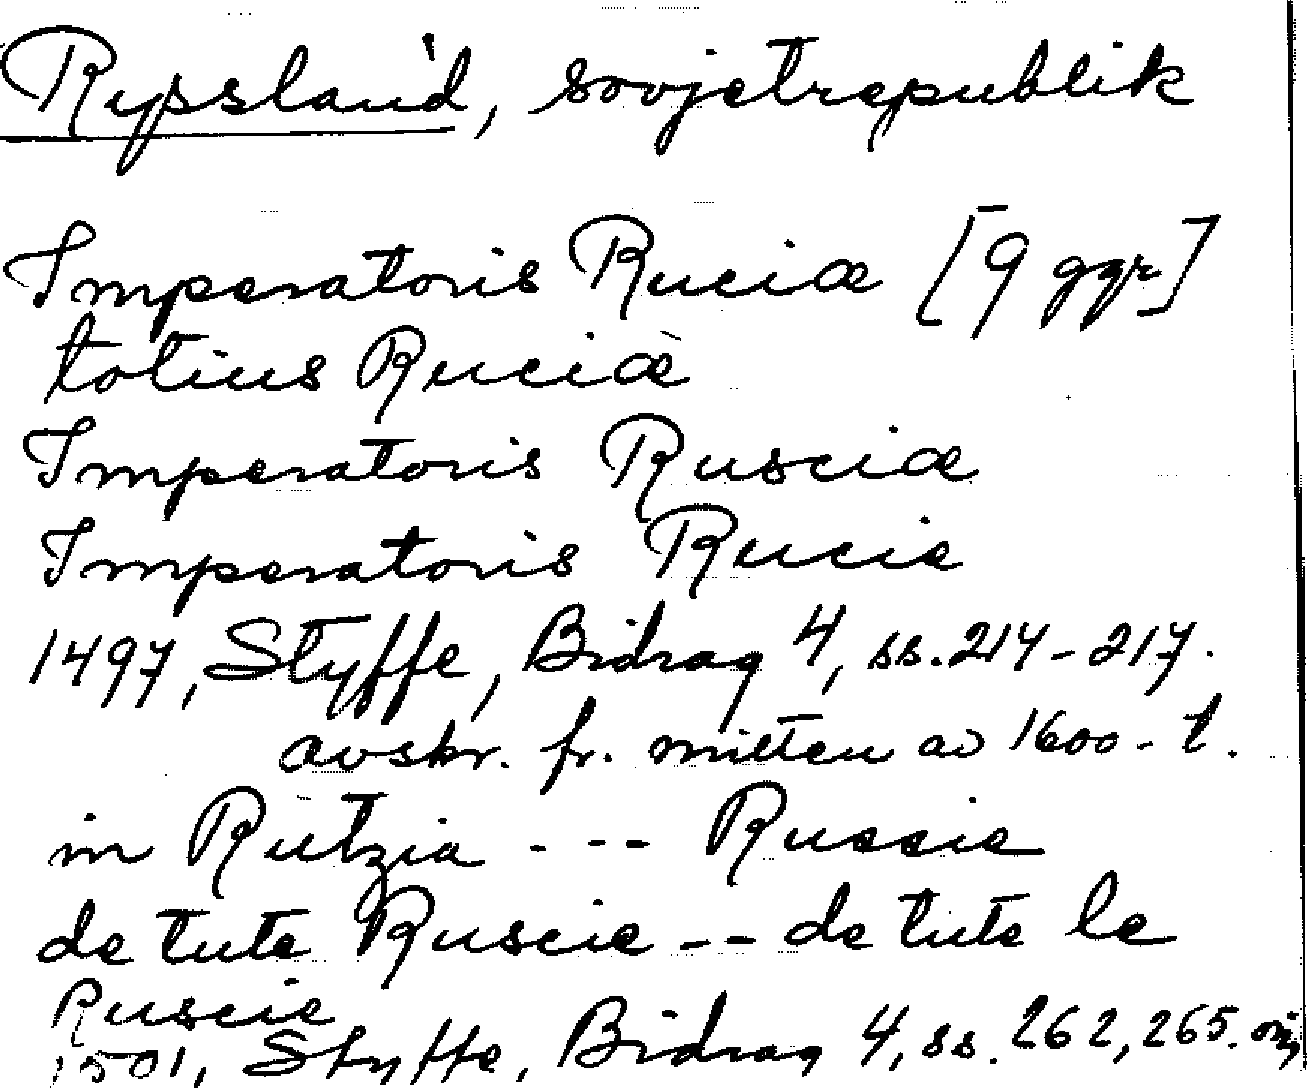 Ryssland, sovjetrepublik
Imperatoris Ruciæ [9 ggr]
totius Ruciæ
Imperatoris Rusciæ
Imperatoris Rucie
1497, Styffe, Bidrag 4, ss. 214-217.
avskr. fr. mitten av 1600-t.
in Rutzia --- Russie
de tute Ruscie -- de tute le
Ruscie
1501, Styffe, Bidrag 4, ss. 262, 265. orig